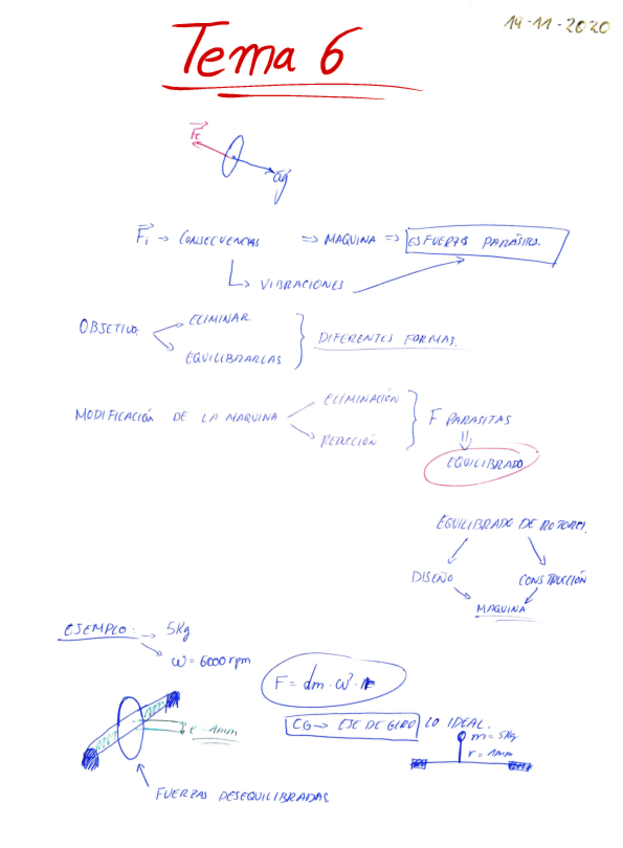 14-11-2020
Tema 6
Fc
ag
Fi → CONSECUENCIAS ⇒ MAQUINA ⇒ ESFUERZOS PARÁSITOS.
↳ VIBRACIONES
OBJETIVO
ELIMINAR
EQUILIBRARLAS
DIFERENTES FORMAS.
MODIFICACIÓN DE LA MAQUINA
ELIMINACIÓN
REDUCCIÓN
F PARASITAS
EQUILIBRADO
EQUILIBRADO DE ROTORES.
DISEÑO
CONSTRUCCIÓN
MAQUINA
EJEMPLO: → 5Kg
ω = 6000 rpm
F = dm · ω² · r
CG → EJE DE GIRO LO IDEAL.
e = 1mm
m = 5Kg
r = 1mm
FUERZAS DESEQUILIBRADAS